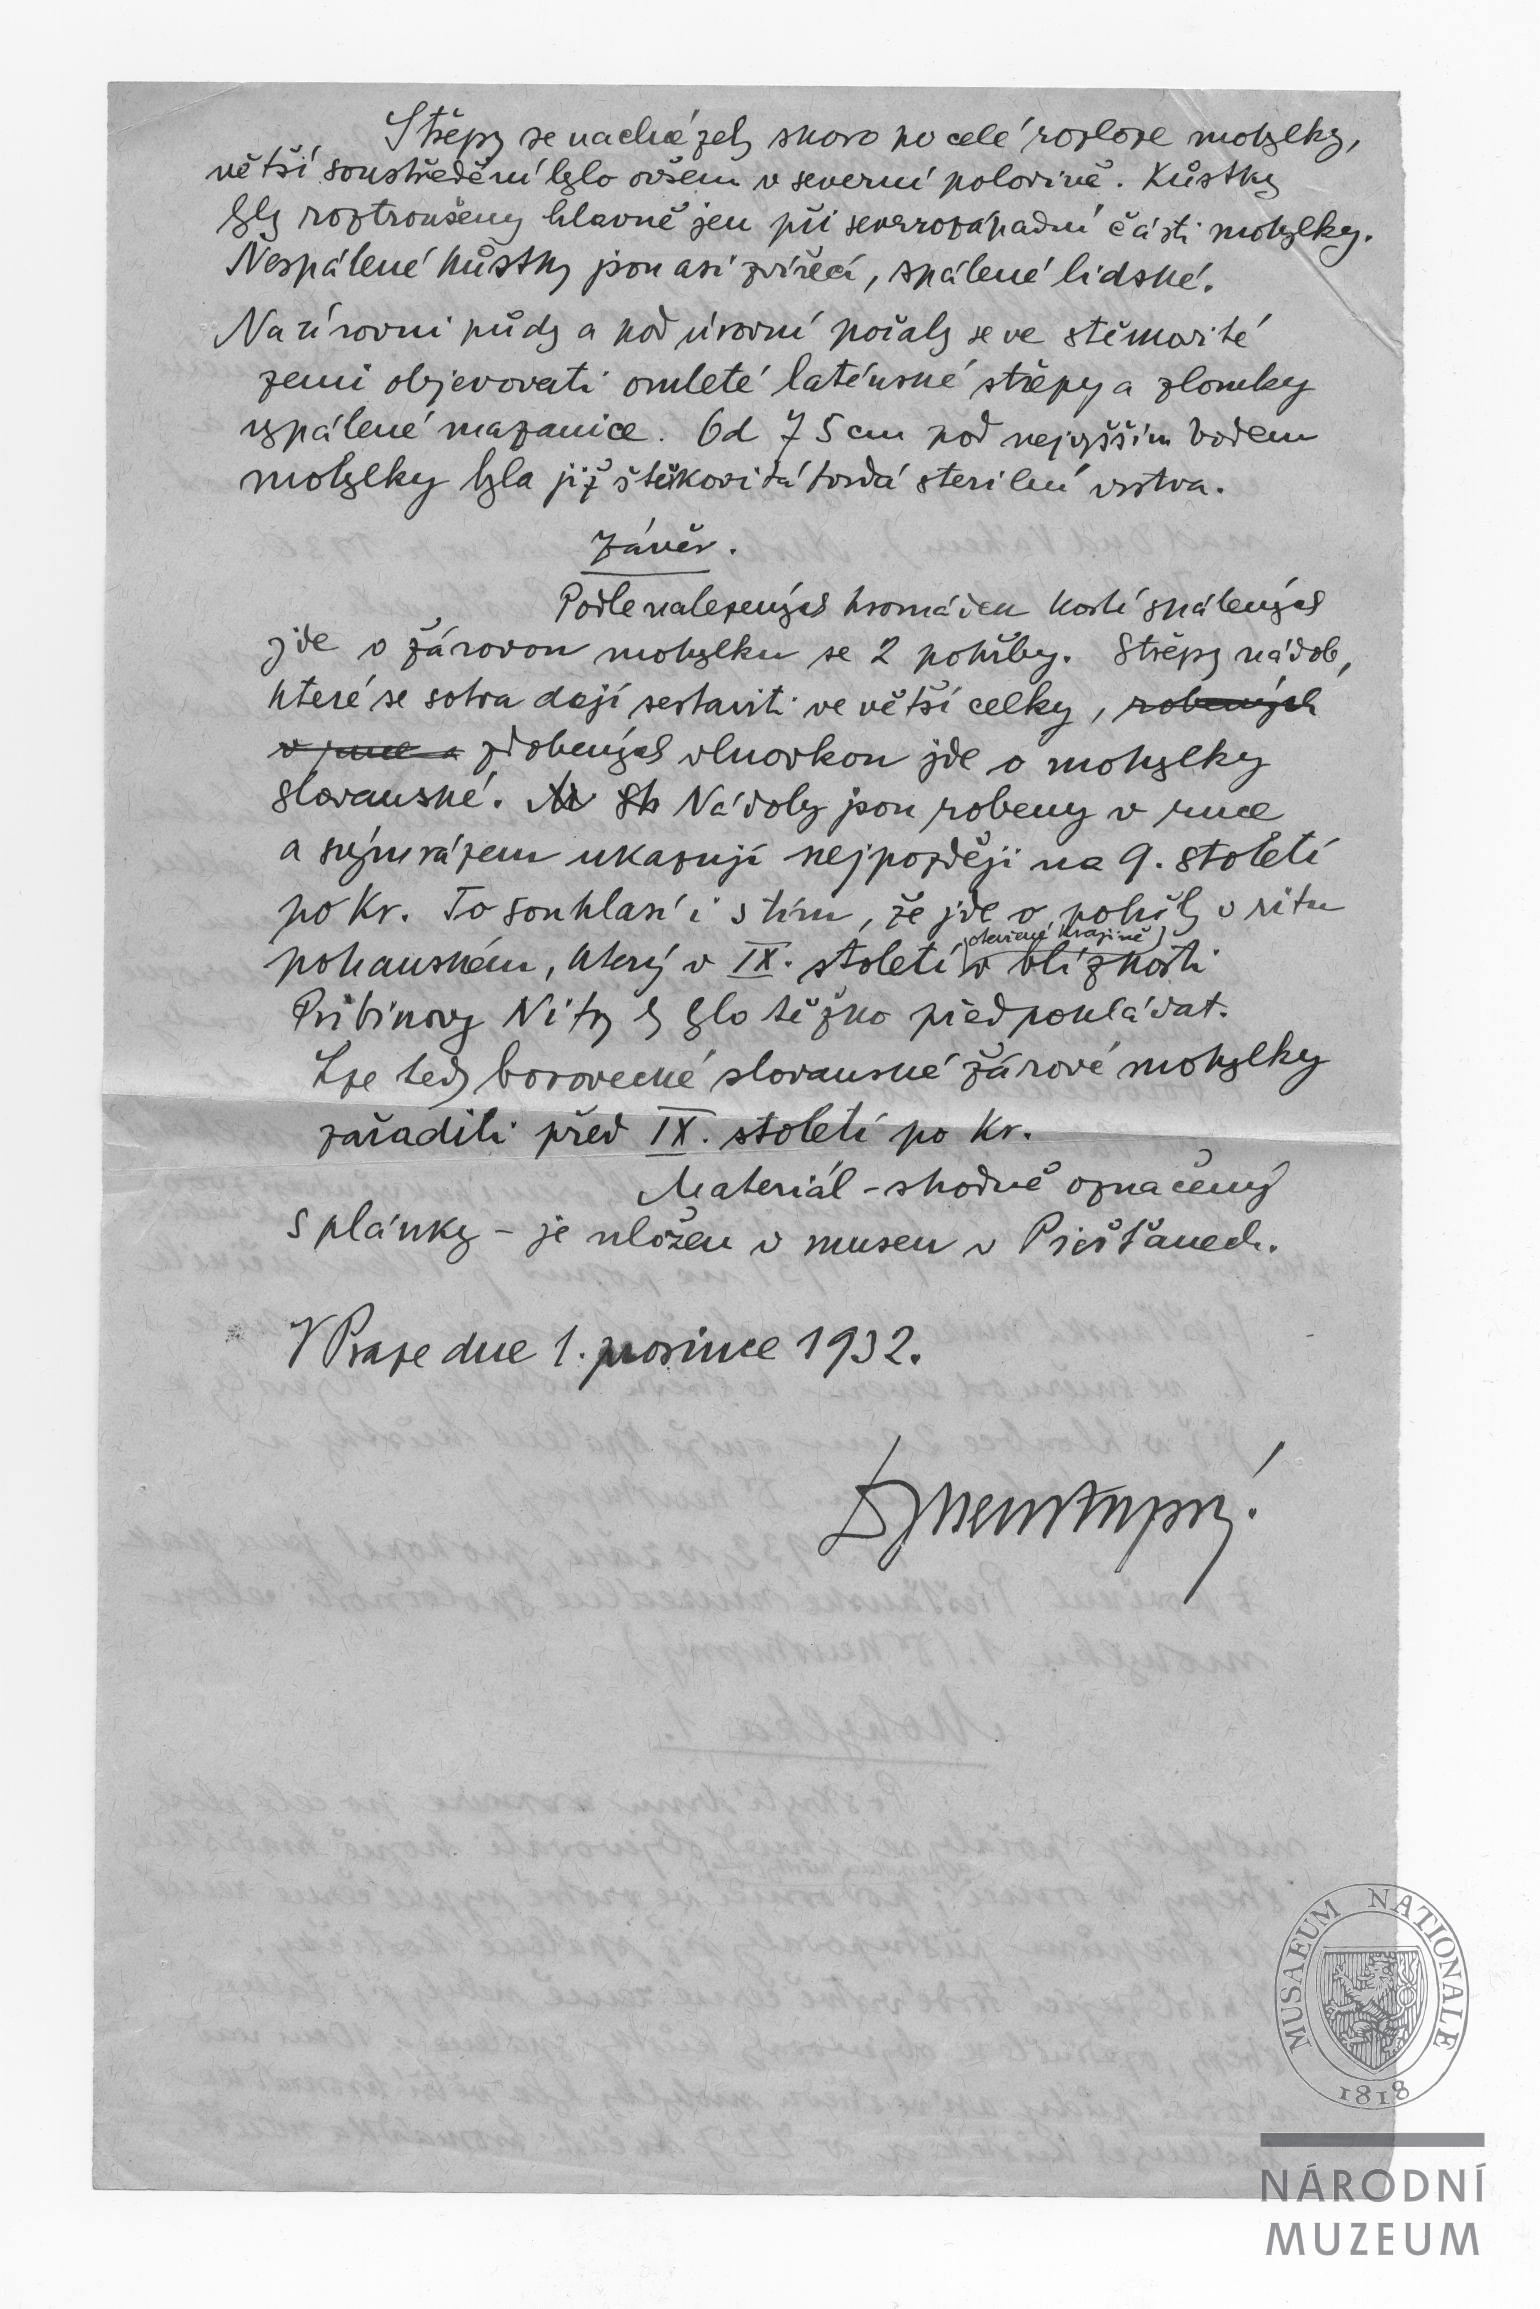 Střepy se nacházely skoro po celé rozloze mohylky,
větší soustředění bylo ovšem v severní polovině. Kůstky
byly roztroušeny hlavně jen při severozápadní části mohylky.
Nespálené kůstky jsou asi zvířecí, spálené lidské.
Na úrovni půdy a pod úrovní počaly se ve
zemi objevovati omleté laténské střepy a zlomky
vypálené mazanice. Od 75 cm pod nejvyšším bodem
mohylky byla již štěrkovitá tvrdá sterilní vrstva.
Závěr.
Podle nalezených hromádek kostí spálených
jde o žárovou mohylku se 2 pohřby. Střepy nádob,
které se sotva dají sestaviti ve větší celky, robených
v ruce a zdobených vlnovkou jde o mohylky
slovanské. Nádoby jsou robeny v ruce
a svým rázem ukazují nejpozději na 9. století
po Kr. To souhlasí i s tím, že jde o pohřby v ritu
pohanském, který v IX. století v otevřené krajině v blízkosti
Pribinovy Nitry by bylo těžko předpokládat.
Lze tedy borovecké slovanské žárové mohylky
zařaditi před IX. století po Kr.
Materiál - shodně označený
s plánky - je uložen v museu v Piešťanech.
V Praze dne 1. prosince 1932.
Dr Neustupný.
MUSAEUM NATIONALE
1818
NÁRODNÍ
MUZEUM